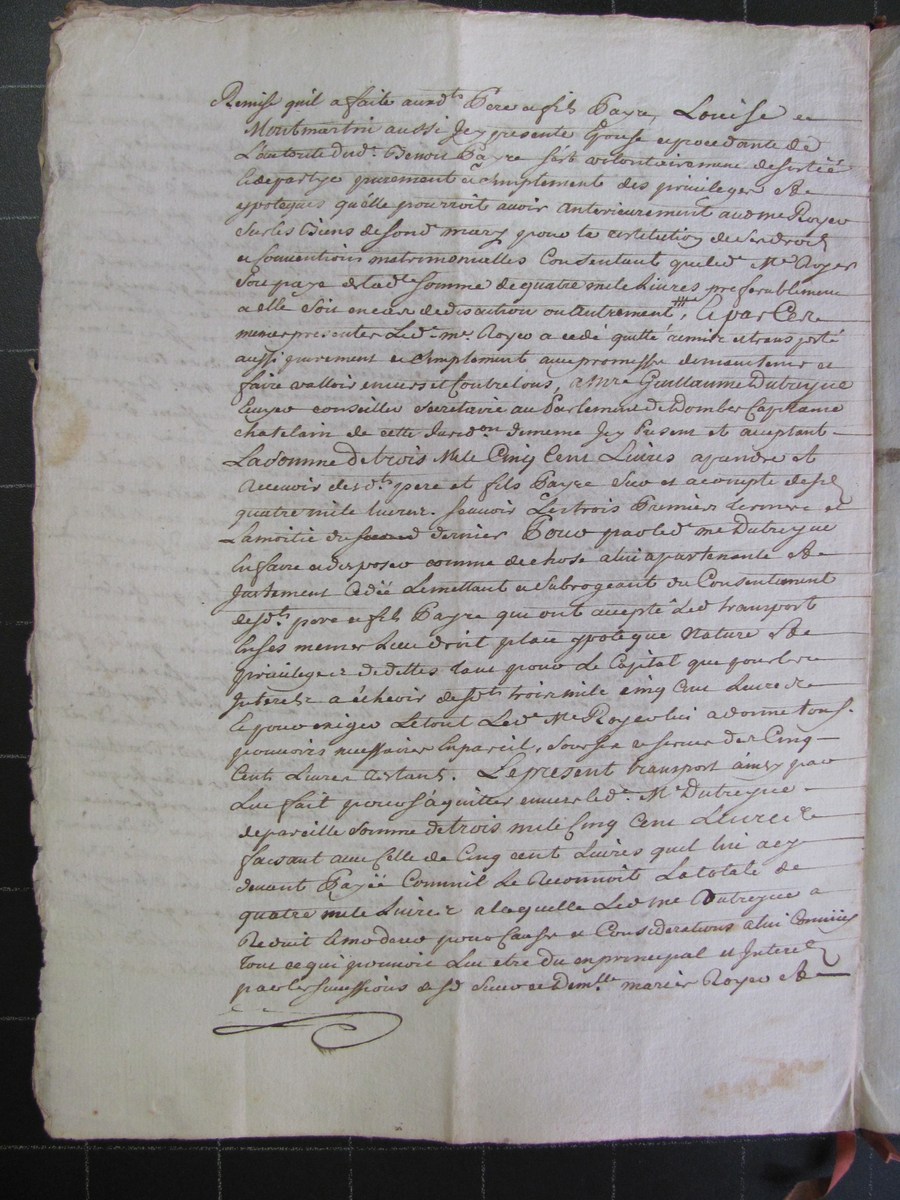 Remise quil a faite auxdts Pere et fils Payre, Louise
Montmartin aussi Jcy presente Epouse et procedante de
L'autorité dudt Benoit Payre s'est volontairement desistée
et departye purement et simplement des privileges et
ypoteques quelle pourroit avoir anterieurement audt me Royer
sur les Biens de sond mary pour la restitution de ses droits
et Conventions matrimonielles Consentant que led Me Royer
soit payé de lade somme de quatre mile Livres preferablement
a elle soit en cas de discution ou autrement, et par Ces
memes presentes Led me Royer a cedé quitté remis et transporté
aussi purement et simplement avec promesse de maintenir et
faire valloir envers et Contre tous, a mre Guillaume Dutreyne
Ecuyer conseiller secretaire au Parlement de Dombes Capitaine
chatelain de cette Juridon de meme Jcy Present et acceptant
La somme de trois Mile Cinq Cent Livres a prendre et
recevoir desdts pere et fils Payre sur et acompte desd
quatre mile livres. scavoir Les trois Premiers termes et
La moitié du dernier Pour par led me Dutreyne
En faire et disposer comme de chose a lui apartenante et
Justement Cedée Le mettant et subrogeant du Consentement
desdts pere et fils Payre qui ont accepté Led transport
En ses memes Lieu droit place ypoteque Nature et
privileges de dettes tant pour Le Capital que pour les
Jnterets a échevoir desdts trois mile cinq Cent Livres et
pour exiger Le tout Led Me Royer lui a donné tous
pouvoirs necessaires En pareil, sous la reserve des Cinq
Cents Livres restants. Le present transport ainsy par
Lui fait pour s'aquitter envers led Me Dutreyne
de pareille somme de trois mile Cinq Cent Livres
faisant avec Celle de Cinq cent Livres quil lui a cy
devant Payée Comme il Le Reconnoit La totale de
quatre mile Livres a laquelle Led me Dutreyne a
Reduit et moderé pour Causes et Considerations a lui Connües
Tout ce qui pouvoit Lui etre du en principal et Jnterets
par les successions de sr et Demlle marie Royer et